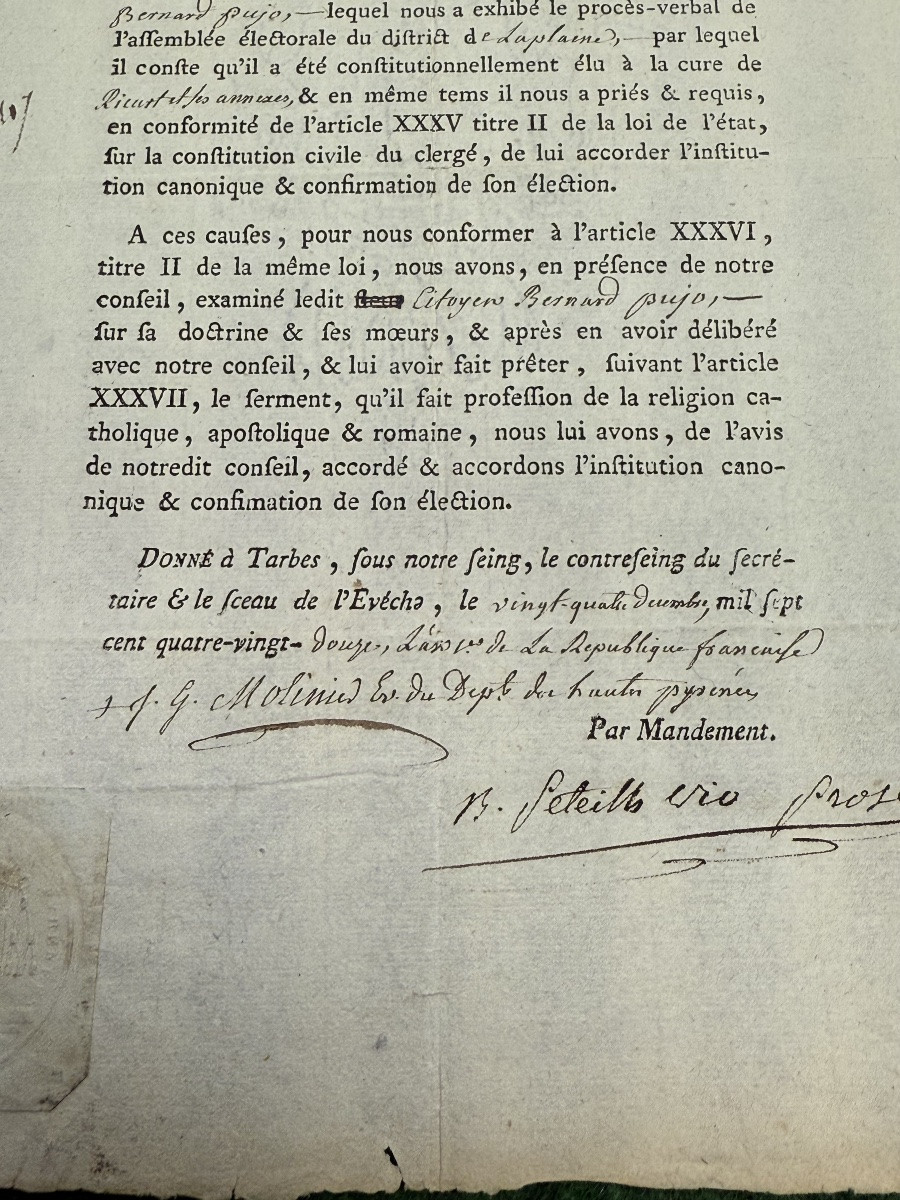 Bernard pujo, — lequel nous a exhibé le procès-verbal de
l'aſſemblée électorale du diſtrict de Laplaine, — par lequel
il conſte qu'il a été conſtitutionnellement élu à la cure de
et ſes annexes, & en même tems il nous a priés & requis,
en conformité de l'article XXXV titre II de la loi de l'état,
ſur la conſtitution civile du clergé, de lui accorder l'inſtitu-
tion canonique & confirmation de ſon élection.
A ces cauſes, pour nous conformer à l'article XXXVI,
titre II de la même loi, nous avons, en préſence de notre
conſeil, examiné ledit ſieur Citoyen Bernard pujo, —
ſur ſa doctrine & ſes mœurs, & après en avoir délibéré
avec notre conſeil, & lui avoir fait prêter, ſuivant l'article
XXXVII, le ſerment, qu'il fait profeſſion de la religion ca-
tholique, apoſtolique & romaine, nous lui avons, de l'avis
de notredit conſeil, accordé & accordons l'inſtitution cano-
nique & confimation de ſon élection.
DONNÉ à Tarbes, ſous notre ſeing, le contreſeing du ſecré-
taire & le ſceau de l'Evêché, le vingt-quatre decembre, mil ſept
cent quatre-vingt- douze, L'an 1er de La Republique francaise
+ J. G. Molinier Ev. du Dept. des hautes pyrénées
Par Mandement.
B.